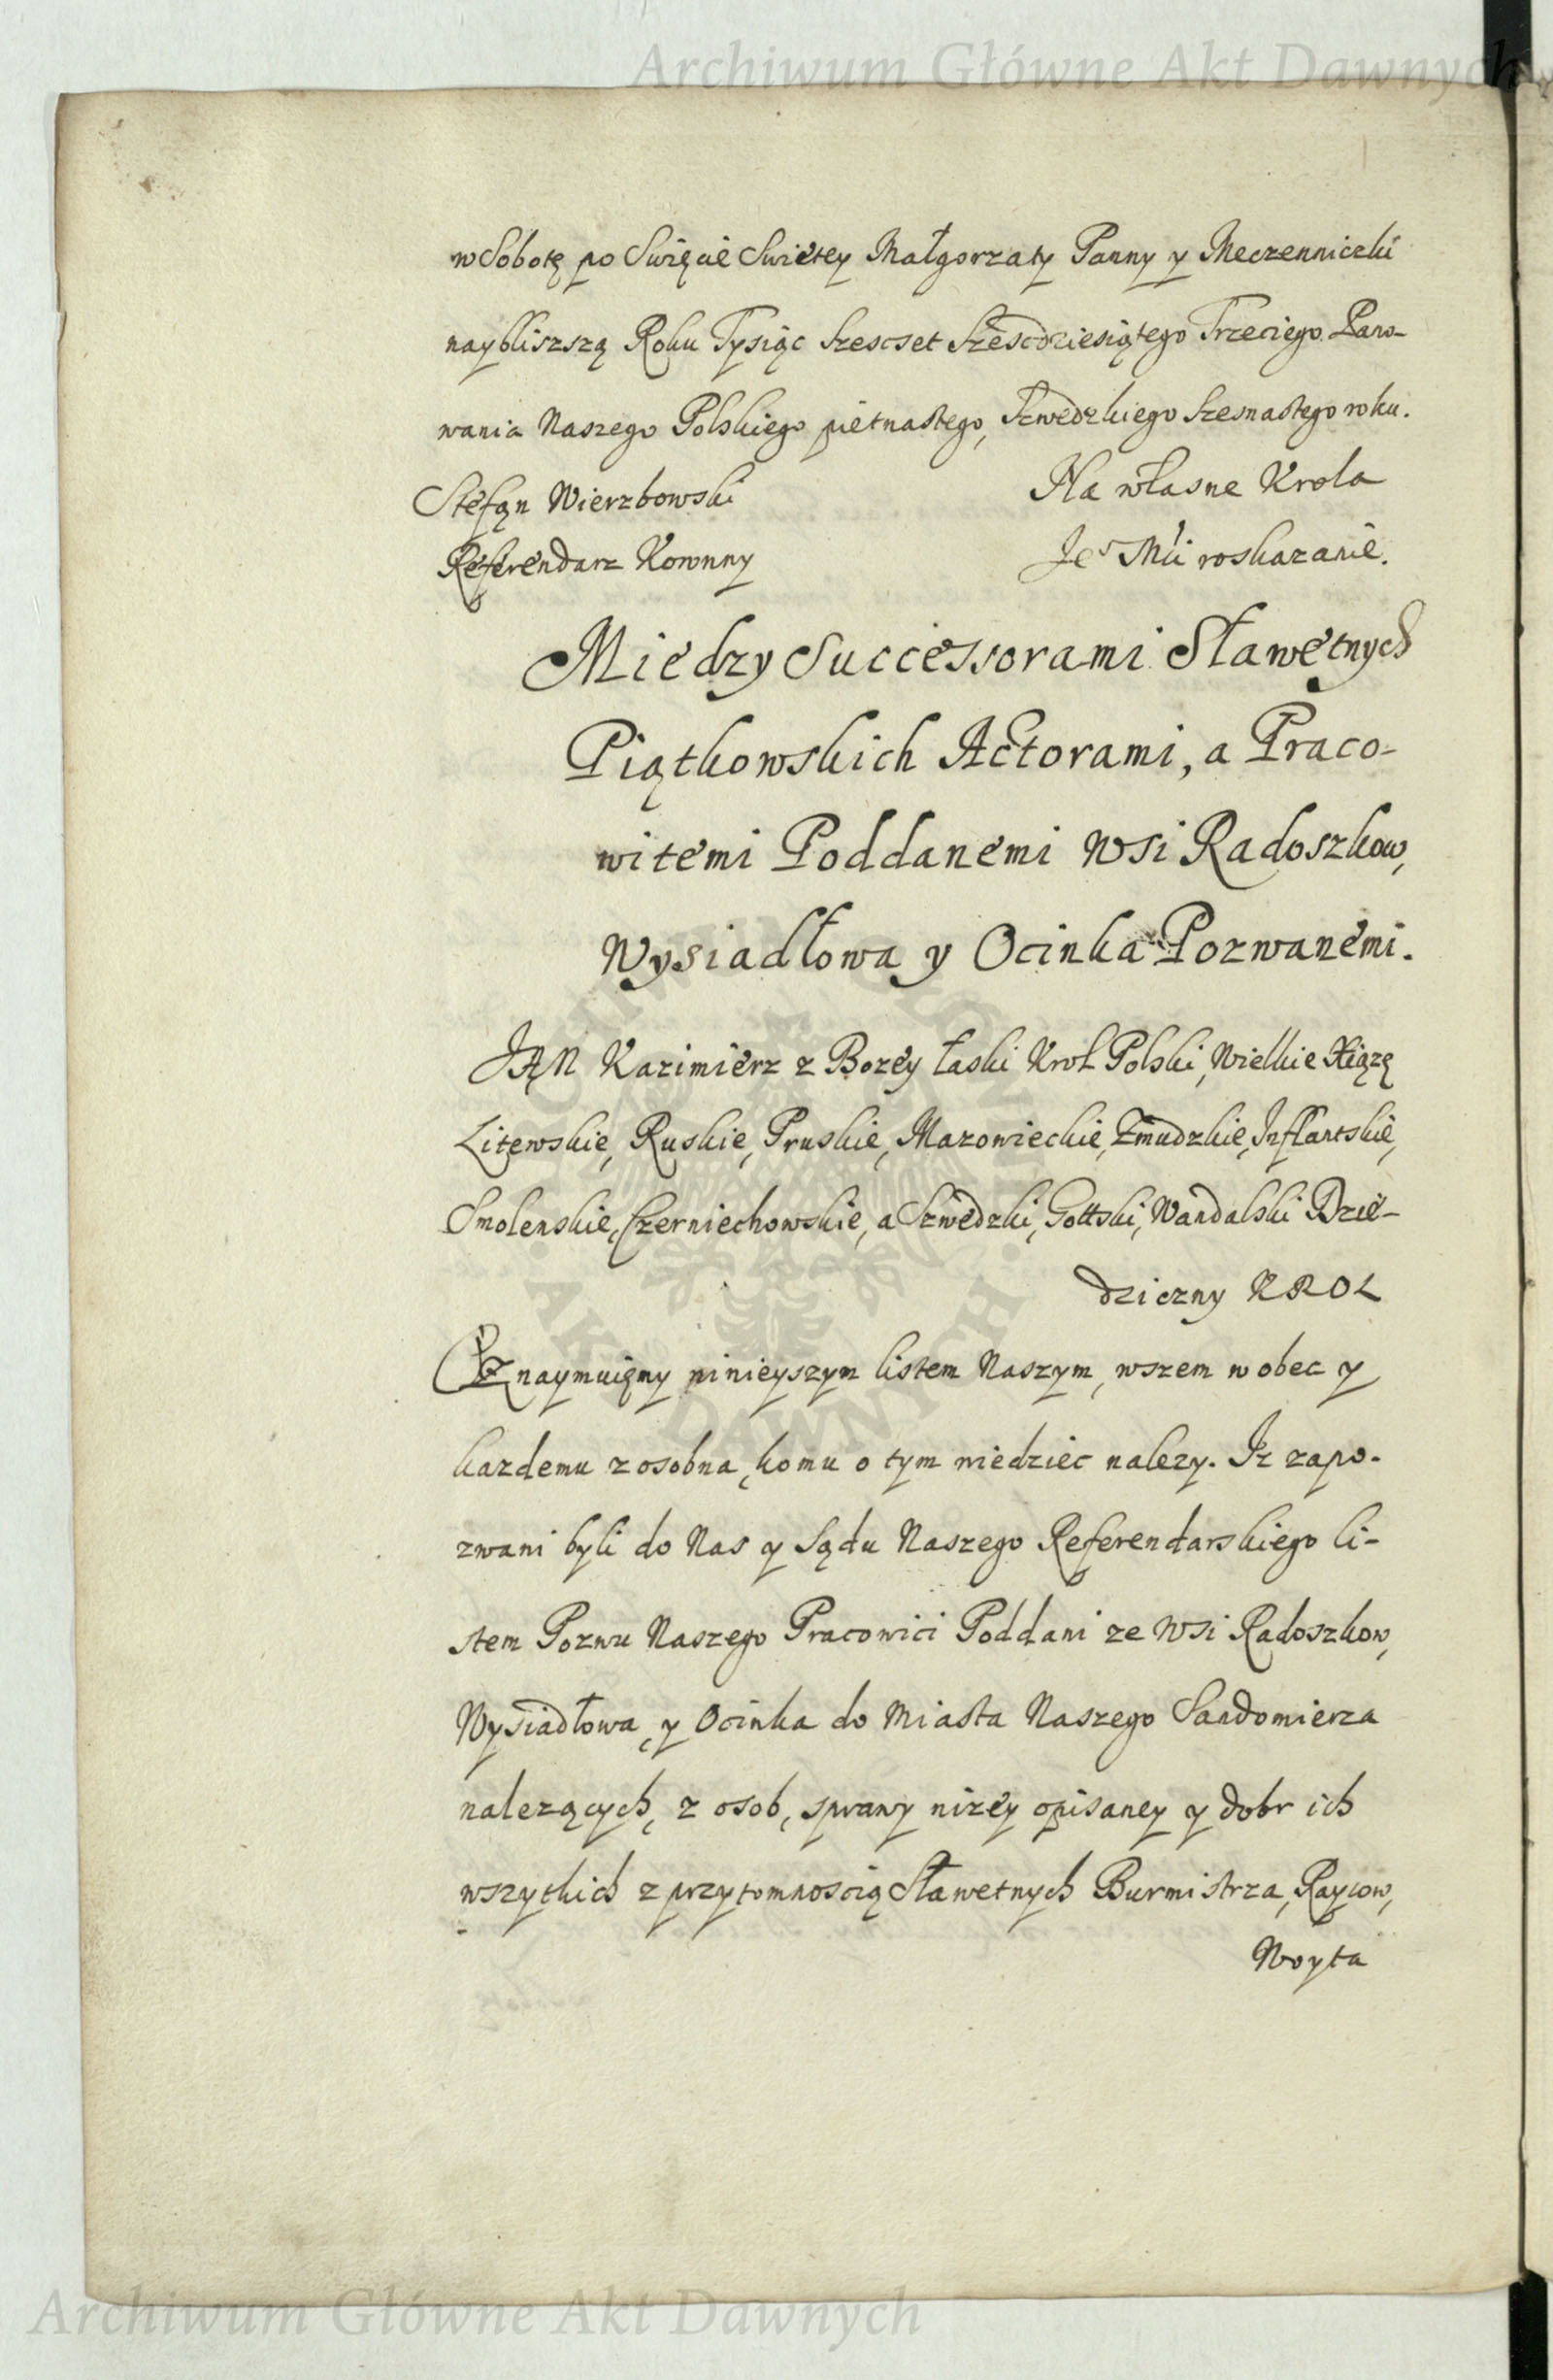 Archiwum Główne Akt Dawnych
w Sobotę po Swięcie Swietey Małgorzaty Panny y Meczenniczki
naybliszszą Roku Tysiąc Szescset Szescdziesiątego Trzeciego. Pano-
wania Naszego Polskiego pietnastego, Szwedzkiego Szesnastego roku.
Stefan Wierzbowski Na własne Krola
Referendarz Koronny Je° Mci roskazanie.
Miedzy Successorami Sławetnych
Piątkowskich Actorami, a Praco-
witemi Poddanemi Wsi Radoszkow,
Wysiadłowa y Ocinka Pozwanemi.
JAN Kazimierz z Bozey łaski Krol Polski, Wielkie Xiązę
Litewskie, Ruskie, Pruskie, Mazowieckie, Zmudzkie, Inflantskie,
Smolenskie, Czerniechowskie, a Szwedzki, Gottski, Wandalski Dzie-
dziczny KROL
Oznaymuięmy ninieyszym listem Naszym, wszem wobec y
kazdemu zosobna, komu o tym wiedziec nalezy. Iz zapo-
zwani byli do Nas y Sądu Naszego Referendarskiego li-
stem Pozwu Naszego Pracowici Poddani ze Wsi Radoszkow,
Wysiadłowa, y Ocinka do Miasta Naszego Sandomierza
nalezących, z osob, sprawy nizey opisaney y dobr ich
wszytkich z przytomnoscią Sławetnych Burmistrza, Raycow,
Woyta
ARCHIWUM GŁÓWNE · AKT DAWNYCH ·
Archiwum Główne Akt Dawnych